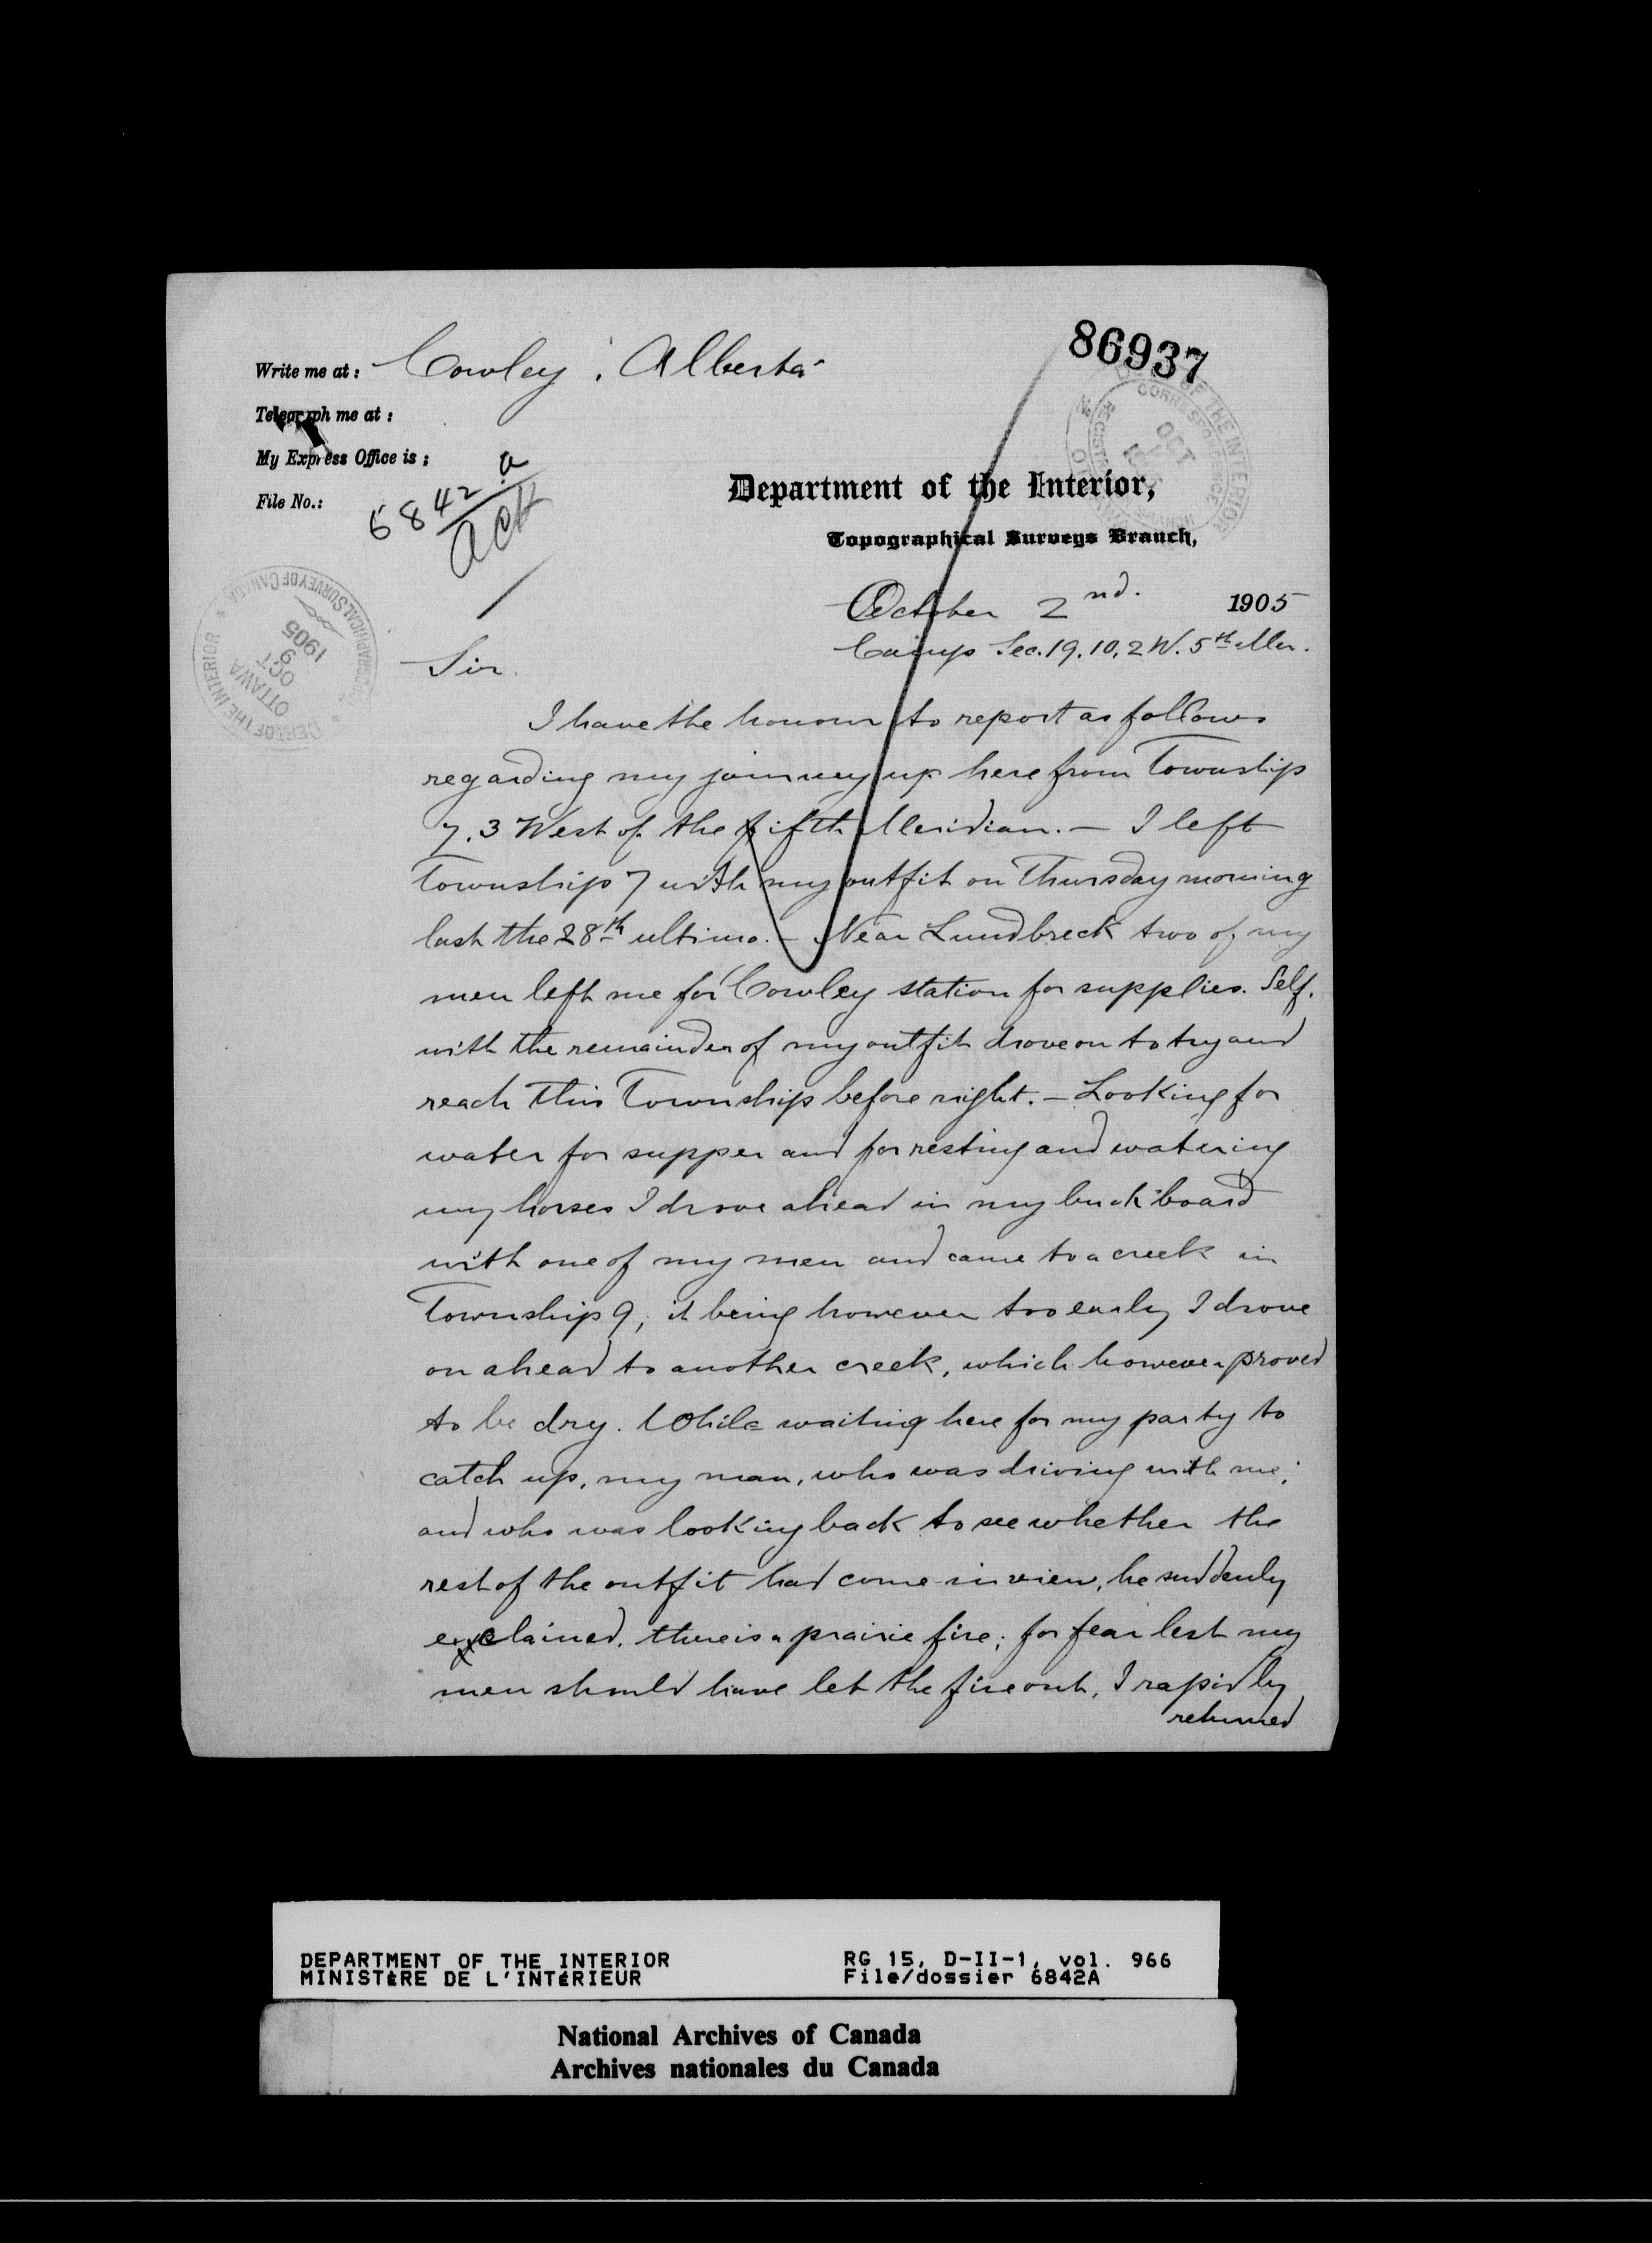 86937
Write me at: Cowley, Alberta
Telegraph me at:
My Express Office is:
File No.: 6842 a
Ack
Department of the Interior,
Topographical Surveys Branch,
DEPT OF THE INTERIOR
OTTAWA
OCT
9
1905
TOPOGRAPHICAL SURVEY OF CANADA
October 2nd. 1905
Camp Sec. 19. 10. 2 W. 5th Mer.
Sir.
I have the honour to report as follows
regarding my journey up here from Township
7. 3 West of the fifth Meridian. — I left
Township 7 with my outfit on Thursday morning
last the 28th ultimo. — Near Lundbreck two of my
men left me for Cowley station for supplies. Self.
with the remainder of my outfit drove on to try and
reach this Township before night. — Looking for
water for supper and for resting and watering
my horses I drove ahead in my buckboard
with one of my men and came to a creek in
Township 9; it being however too early I drove
on ahead to another creek, which however proved
to be dry. While waiting here for my party to
catch up, my man, who was driving with me,
and who was looking back to see whether the
rest of the outfit had come in view, he suddenly
exclaimed, there is a prairie fire; for fear lest my
men should have let the fire out, I rapidly
returned
DEPARTMENT OF THE INTERIOR RG 15, D-II-1, vol. 966
MINISTÈRE DE L'INTÉRIEUR File/dossier 6842A
National Archives of Canada
Archives nationales du Canada